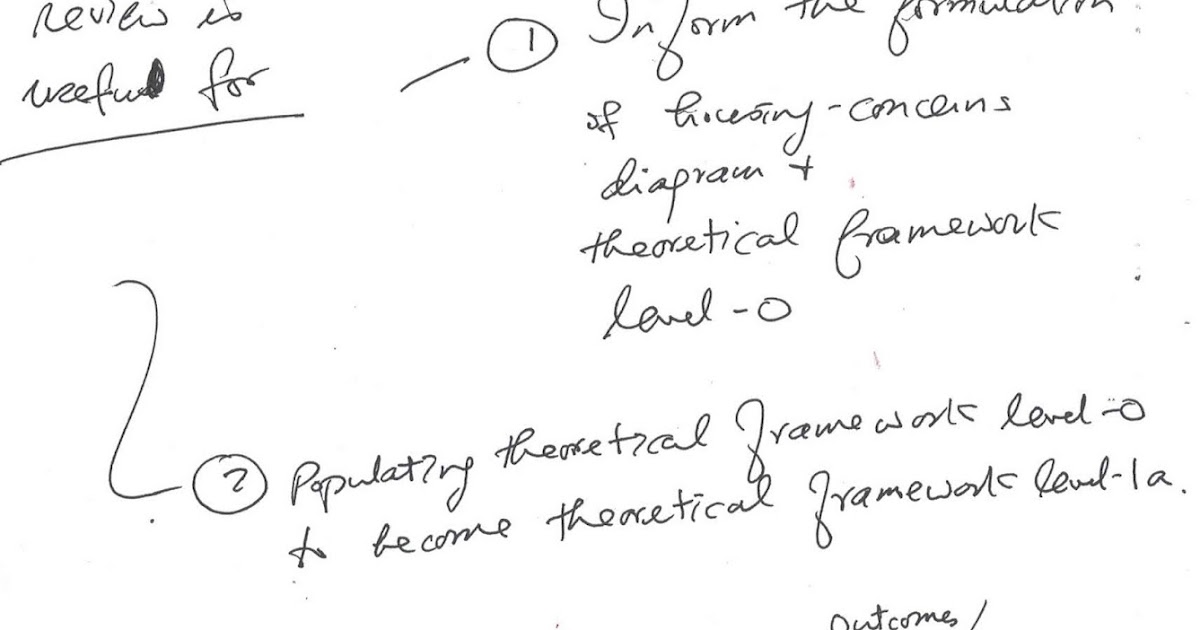 review is
useful for
① Inform the formulation
of housing-concerns
diagram +
theoretical framework
level-0
② Populating theoretical framework level-0
to become theoretical framework level-1a.
Outcomes/